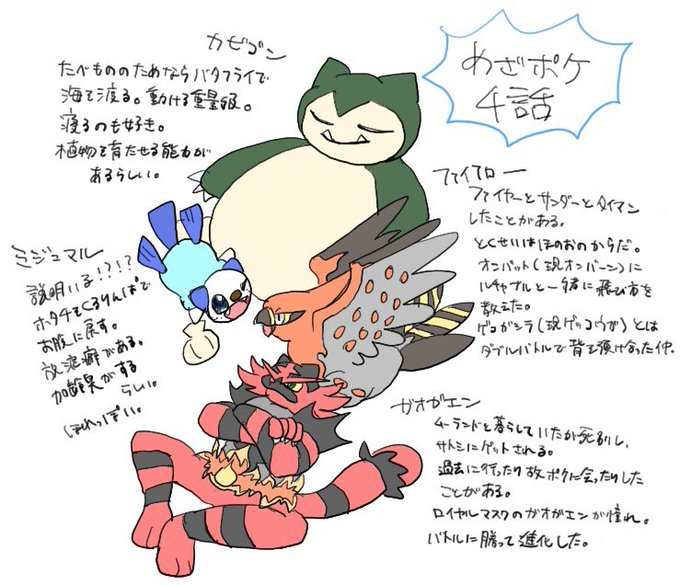 めざポケ
4話
カビゴン
たべもののためならバタフライで
海を渡る。動ける重量級。
寝るのも好き。
植物を育たせる能力が
あるらしい。
ファイアロー
ファイヤーとサンダーとタイマン
したことがある。
とくせいはほのおのからだ。
オンバット(現オンバーン)に
ルチャブルと一緒に飛び方を
教えた。
ゲコガシラ(現ゲッコウガ)とは
ダブルバトルで背を預け合った仲。
ミジュマル
説明いる!?!?
ホタチをくるりんぱで
お腹に戻す。
放浪癖がある。
加齢臭がする
らしい。
ほれっぽい。
ガオガエン
ムーランドと暮らしていたが死別し、
サトシにゲットされる。
過去に行ったり故ポケに会ったりした
ことがある。
ロイヤルマスクのガオガエンが憧れ。
バトルに勝って進化した。